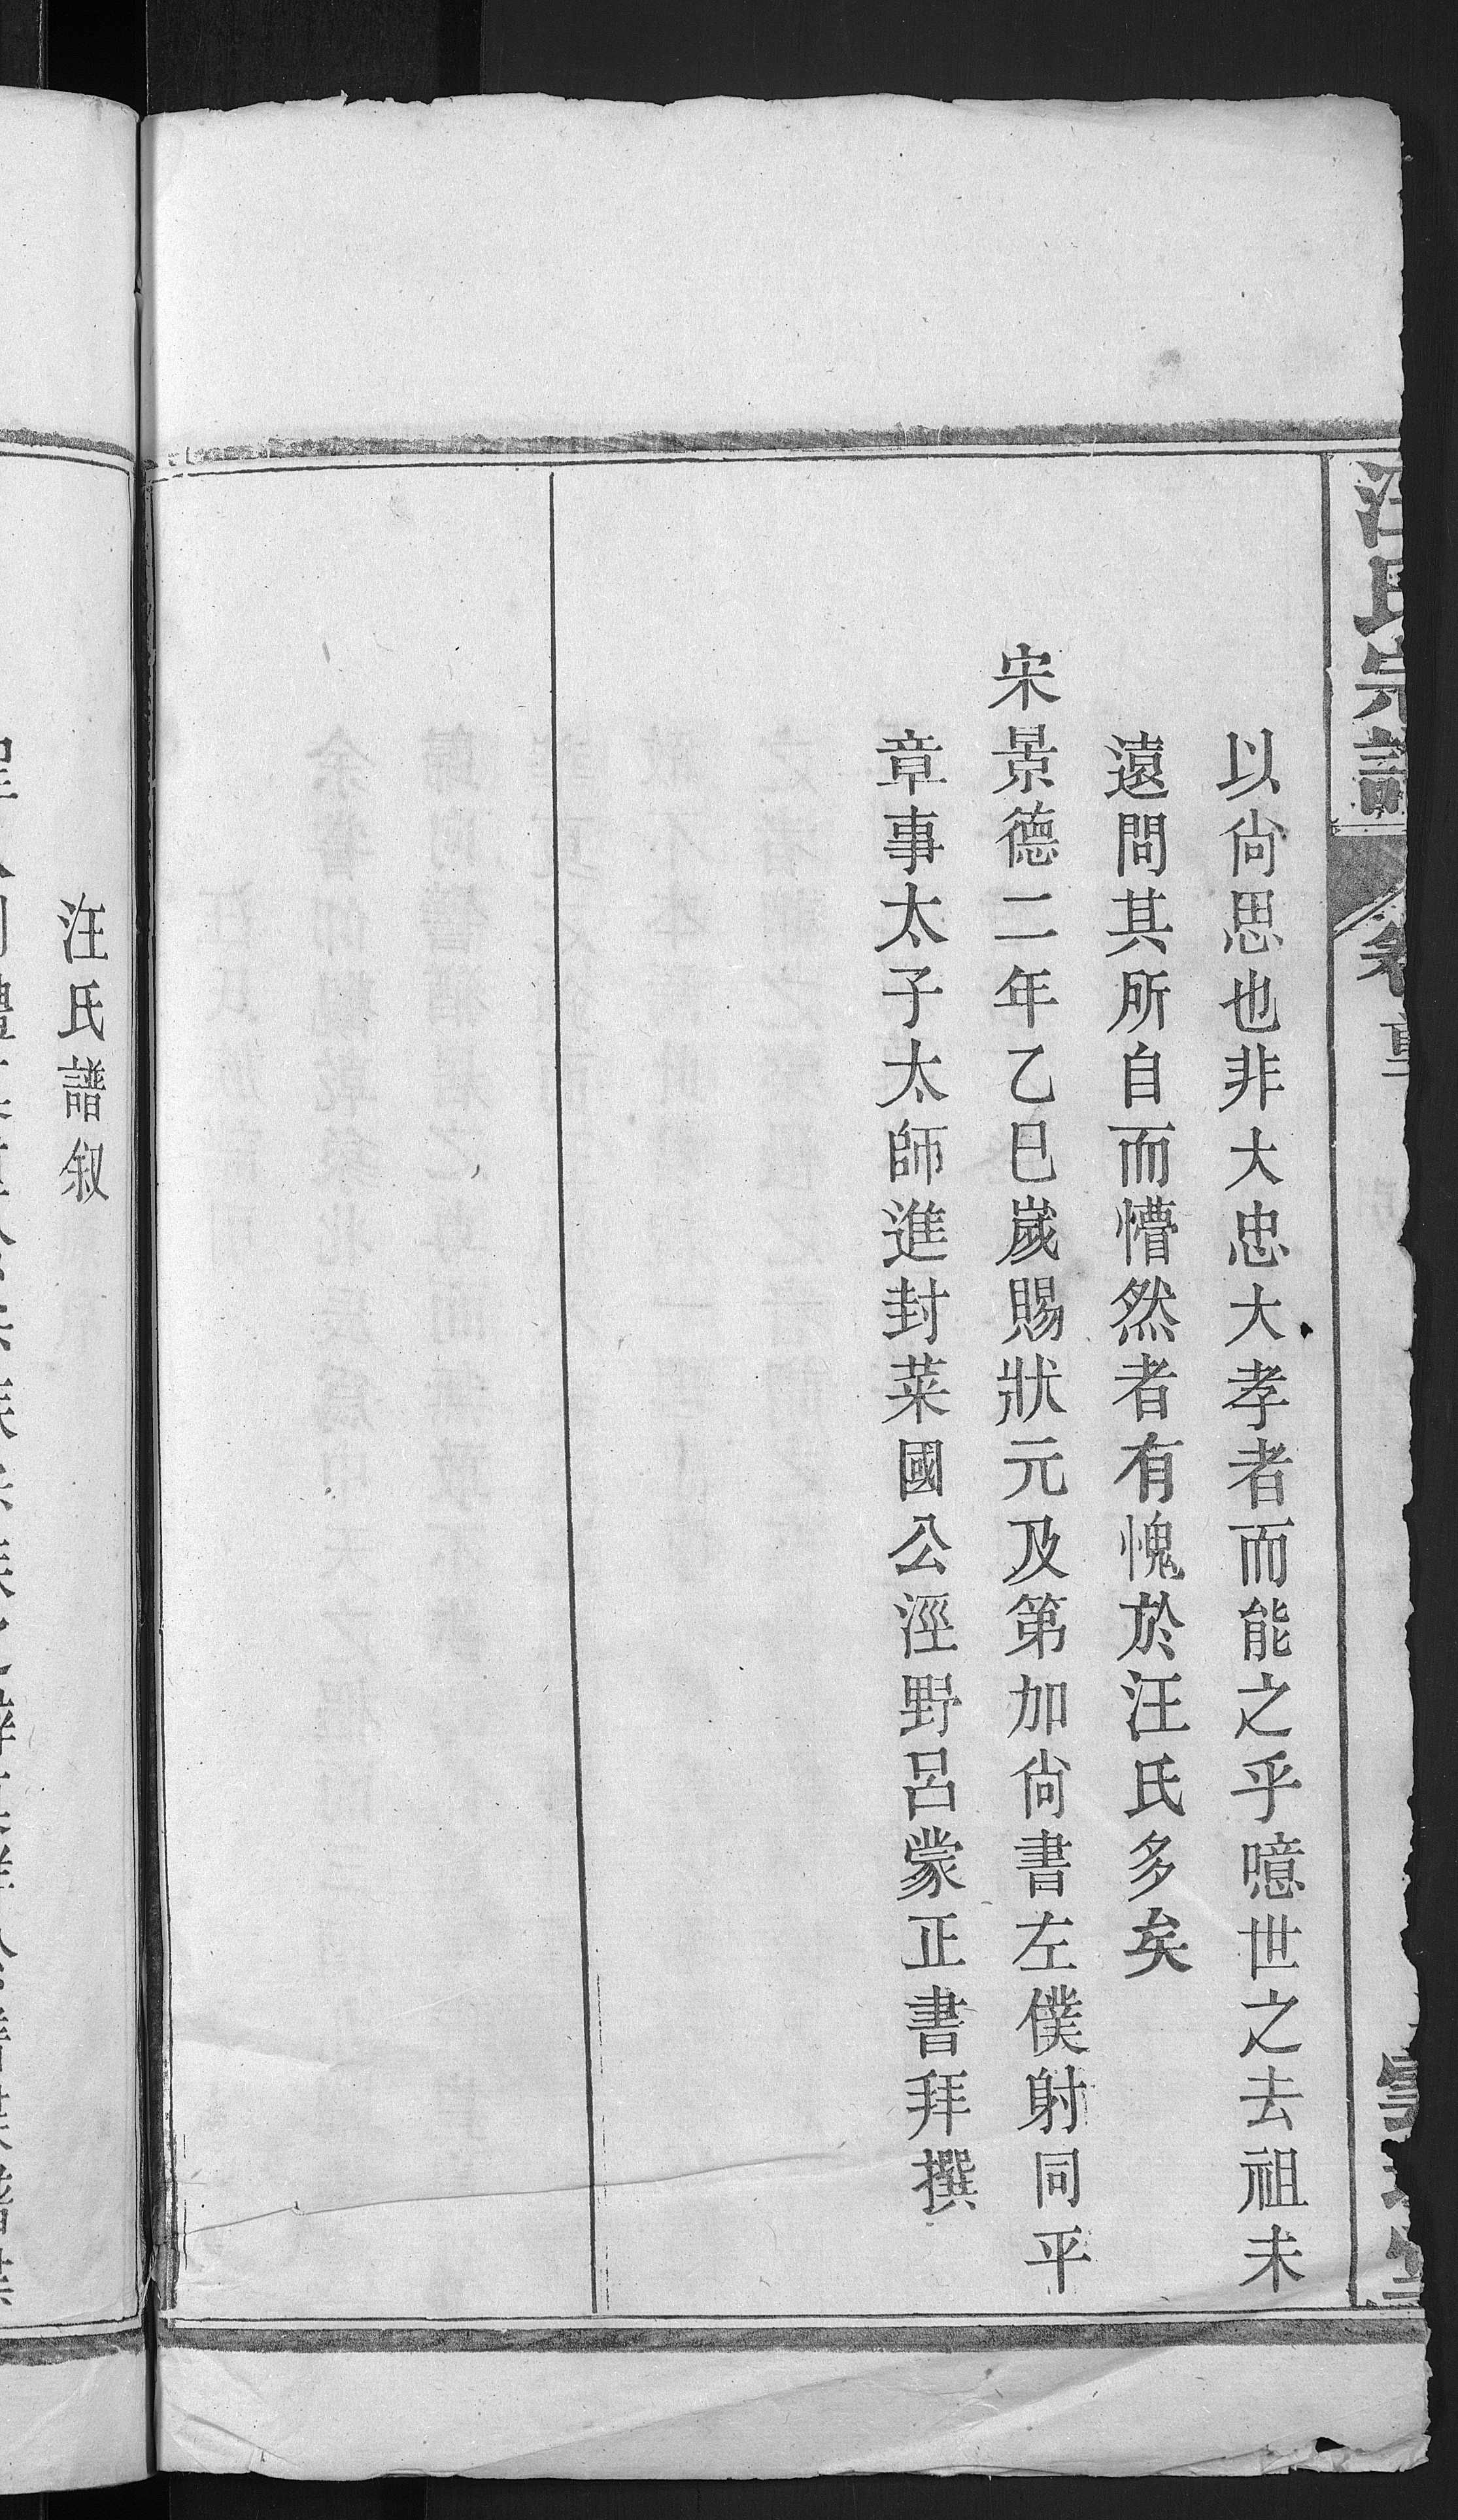 汪氏宗譜
卷
以尙思也非大忠大孝者而能之乎噫世之去祖未
遠問其所自而懵然者有愧於汪氏多矣
宋景德二年乙巳歲賜狀元及第加尙書左僕射同平
章事太子太師進封萊國公涇野呂蒙正書拜撰
汪氏譜叙